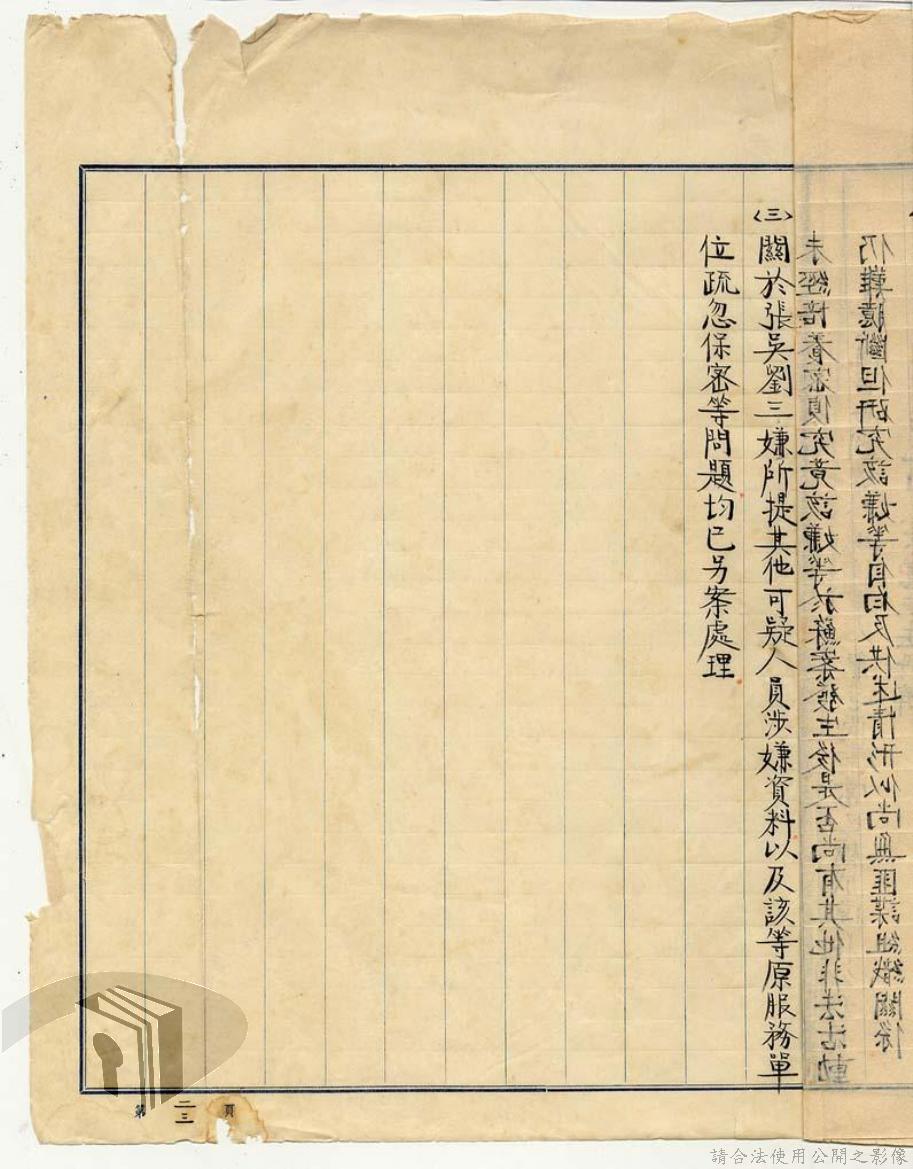 仍難臆斷但研究該嫌等自白及供述情形似尚無匪諜組織關係
未經培養密偵究竟該嫌等於蘇案發生後是否尚有其他非法活動
〈三〉關於張吳劉三嫌所提其他可疑人員涉嫌資料以及該等原服務單
位疏忽保密等問題均已另案處理
第二三頁
請合法使用公開之影像